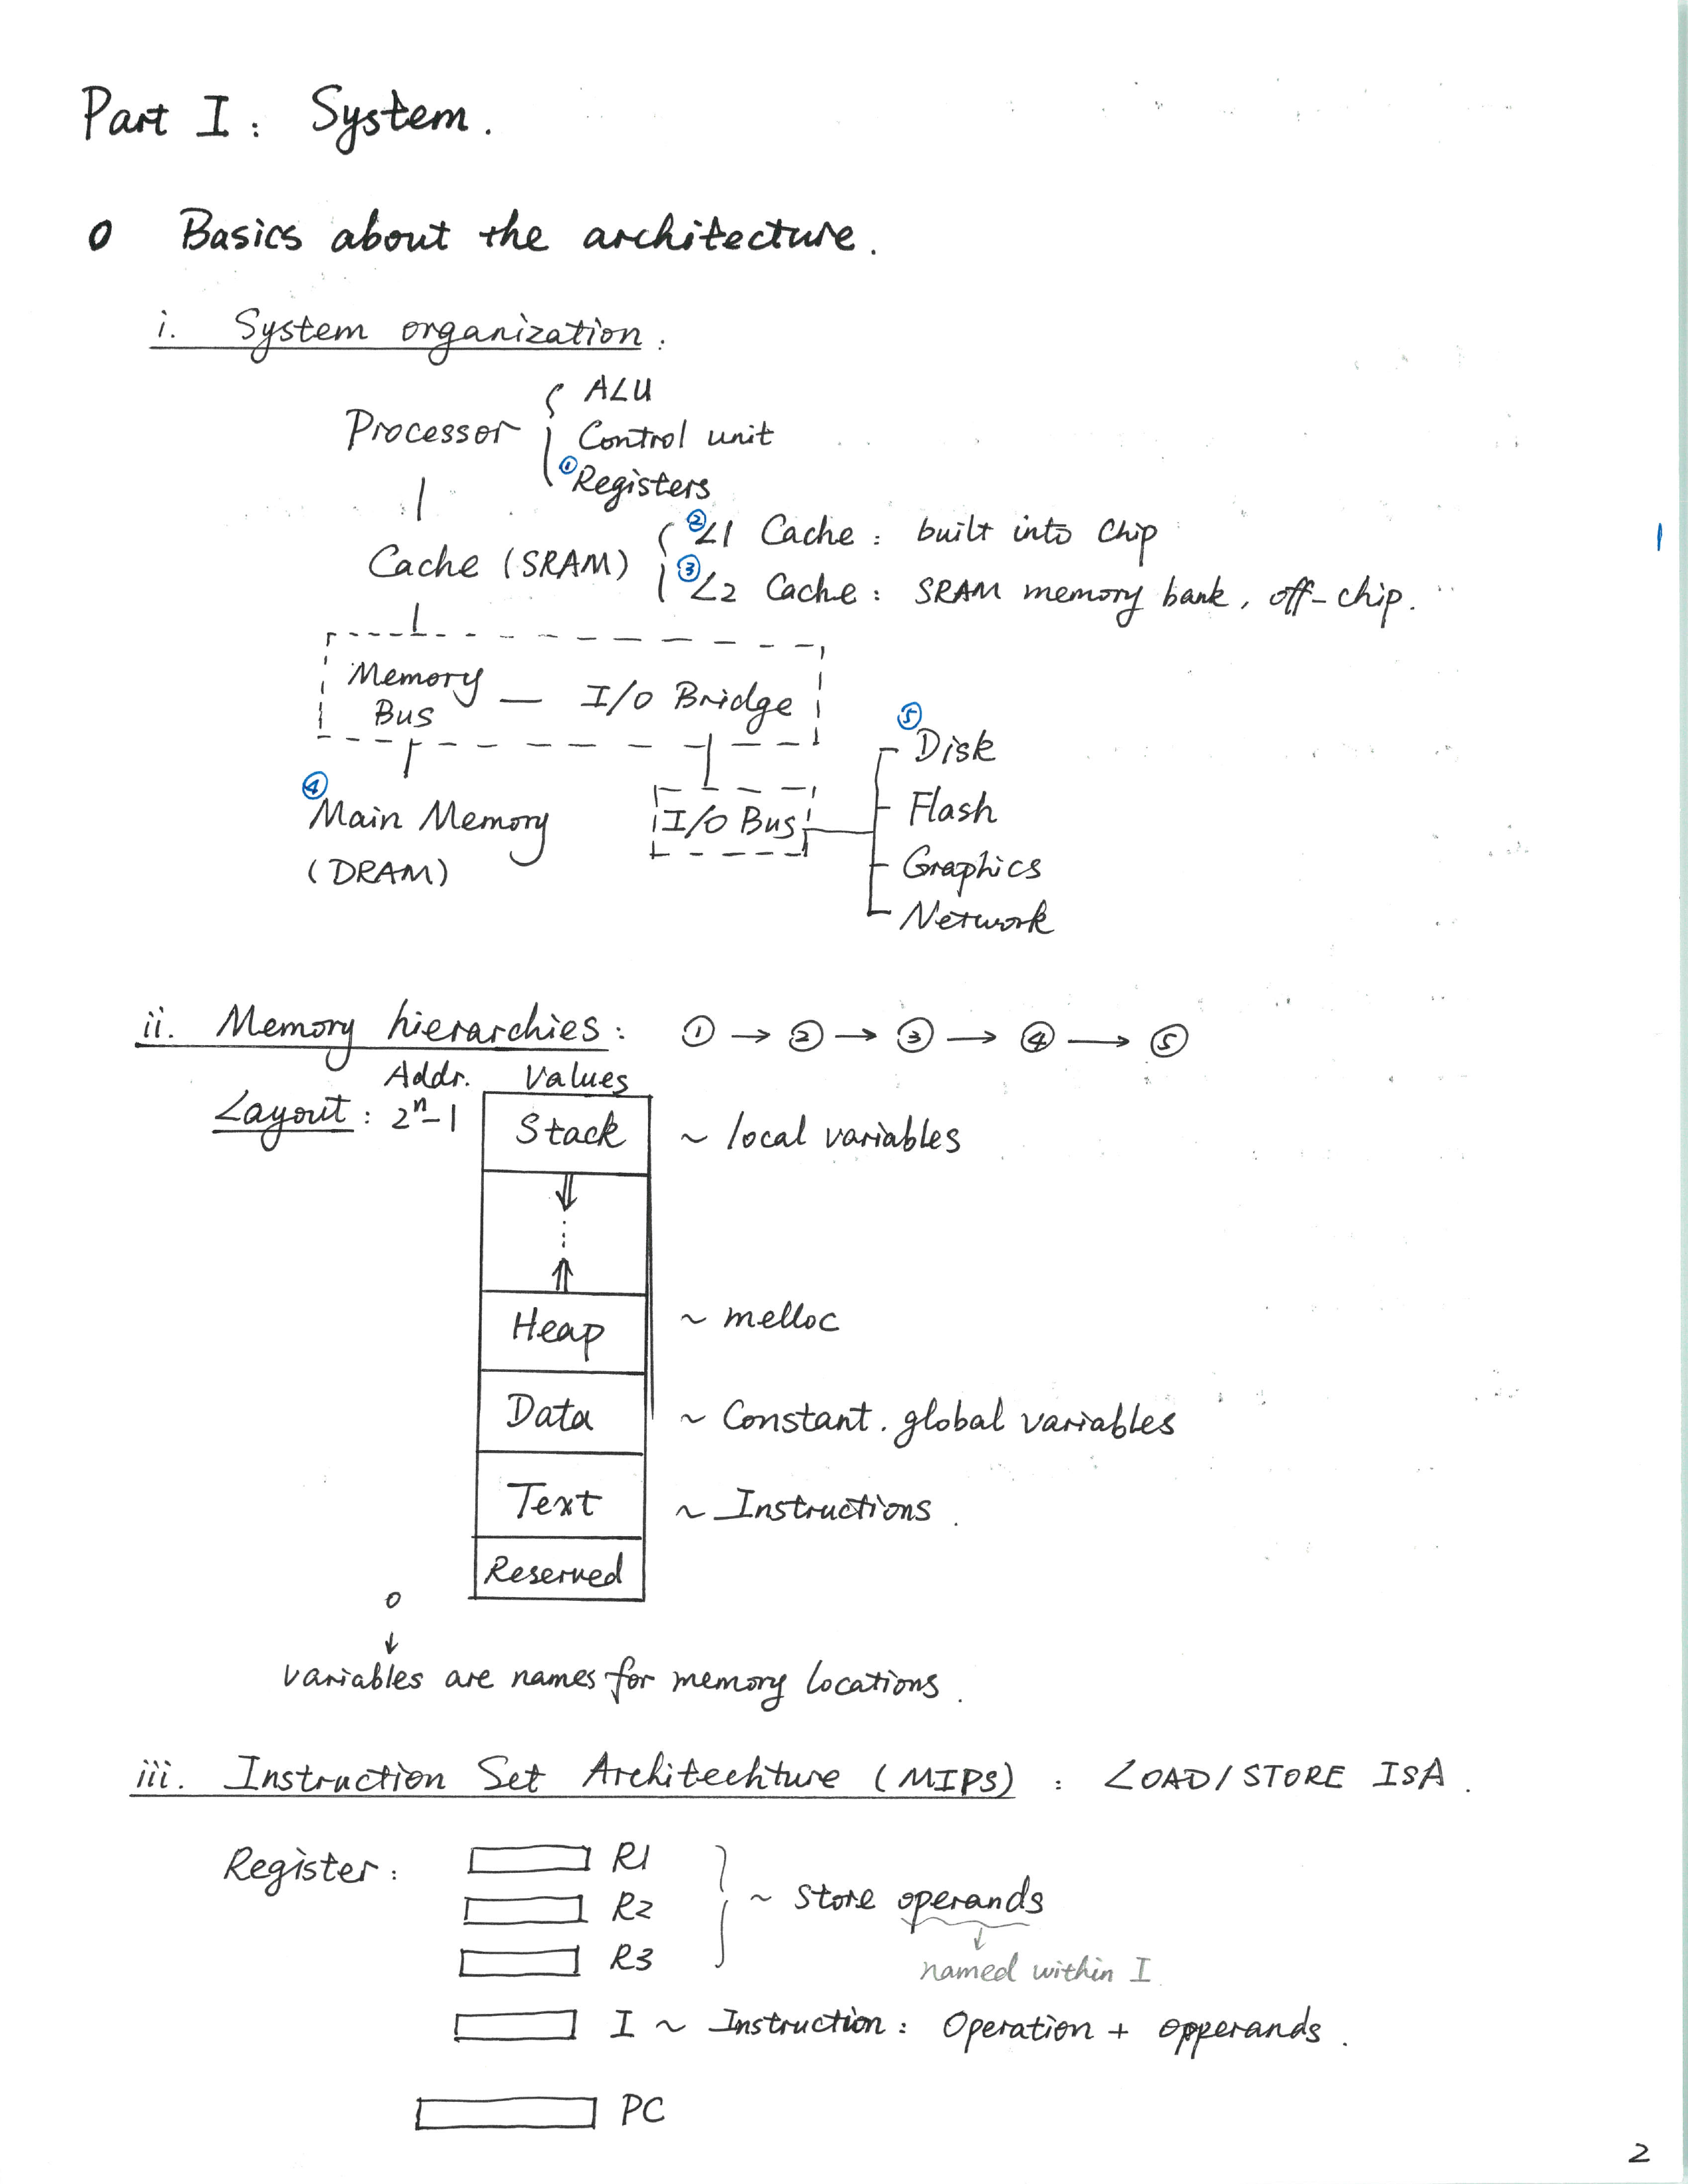 Part I: System.
0 Basics about the architecture.
i. System organization:
ALU
Processor
Control unit
① Registers
② L1 Cache: built into Chip
Cache (SRAM)
③ L2 Cache: SRAM memory bank, off-chip.
Memory Bus — I/O Bridge
⑤ Disk
④ Main Memory
(DRAM)
I/O Bus
Flash
Graphics
Network
ii. Memory hierarchies: ① → ② → ③ → ④ → ⑤
Addr. Values
Layout: 2ⁿ-1 Stack ~ local variables
⇓
⋮
⇑
Heap ~ melloc
Data ~ Constant. global variables
Text ~ Instructions.
Reserved
0
↓
variables are names for memory locations.
iii. Instruction Set Architechture (MIPS): LOAD/STORE ISA.
Register: R1
R2 ~ store operands
↓
R3 named within I
I ~ Instruction: Operation + opperands.
PC
2